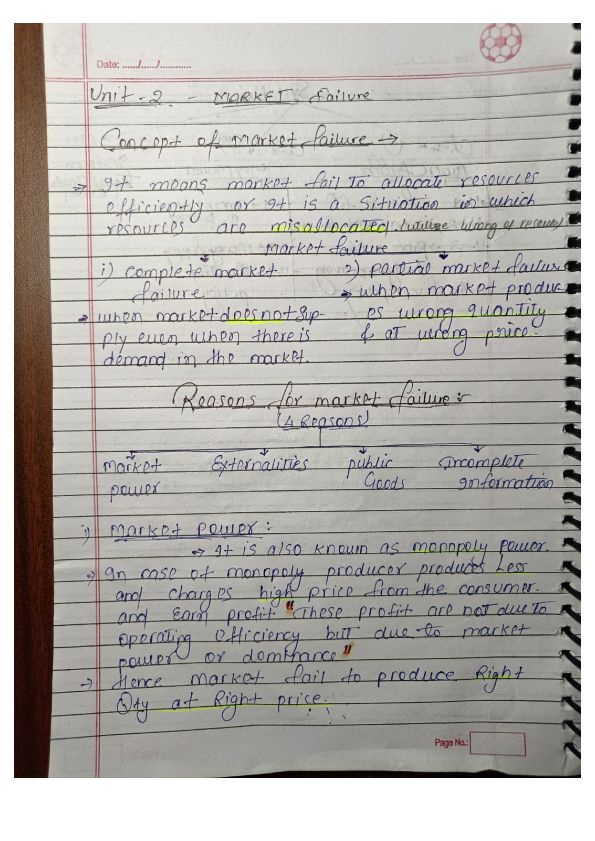 Date: ....../....../............
Unit-2 - MARKET failure
Concept of Market failure →
→ It means market fail to allocate resources
efficiently or It is a situation in which
resources are misallocated / utilize wrong of resources
Market failure
i) complete market failure.
→ when market does not sup-
ply even when there is
demand in the market.
2) partial market failure
→ when market produc-
es wrong quantity
& at wrong price.
Reasons for market failure :-
(4 Reasons)
Market power
Externalities
public Goods
Incomplete Information
i) Market Power :
→ It is also known as monopoly power.
→ In case of monopoly producer produces Less
and charges high price from the consumer.
and Earn profit "These profit are not due to
operating Efficiency but due to market
power or dominance"
→ Hence market fail to produce Right
Qty at Right price.
Page No.: